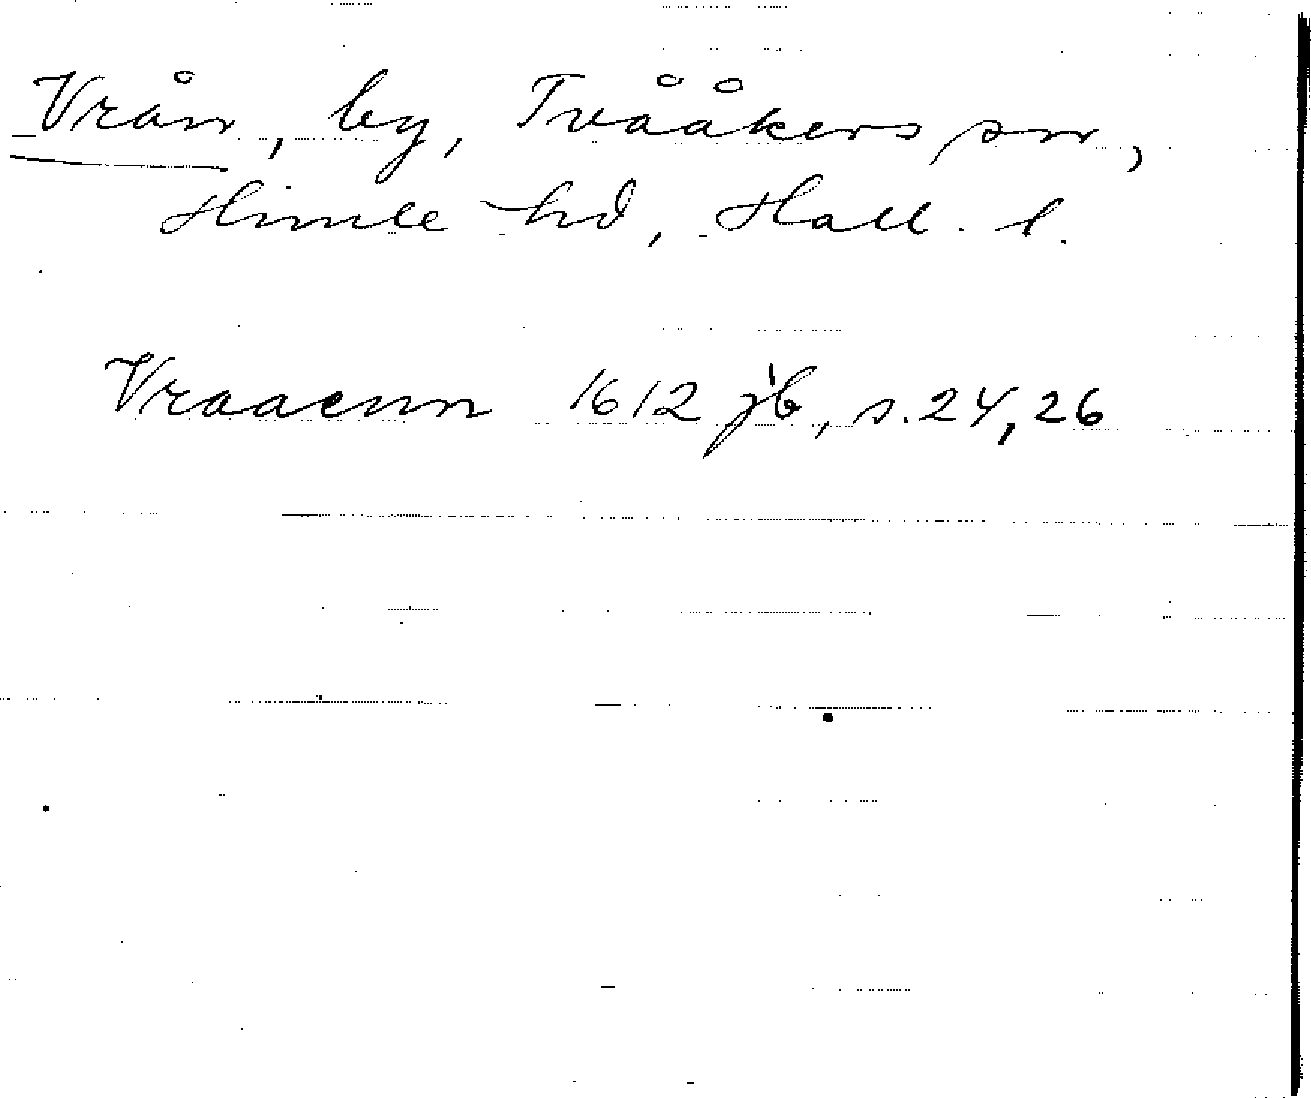 Vrån, by, Tvååkers sn,
Himle hd, Hall. l.
Vraaenn 1612 jb, s. 24, 26